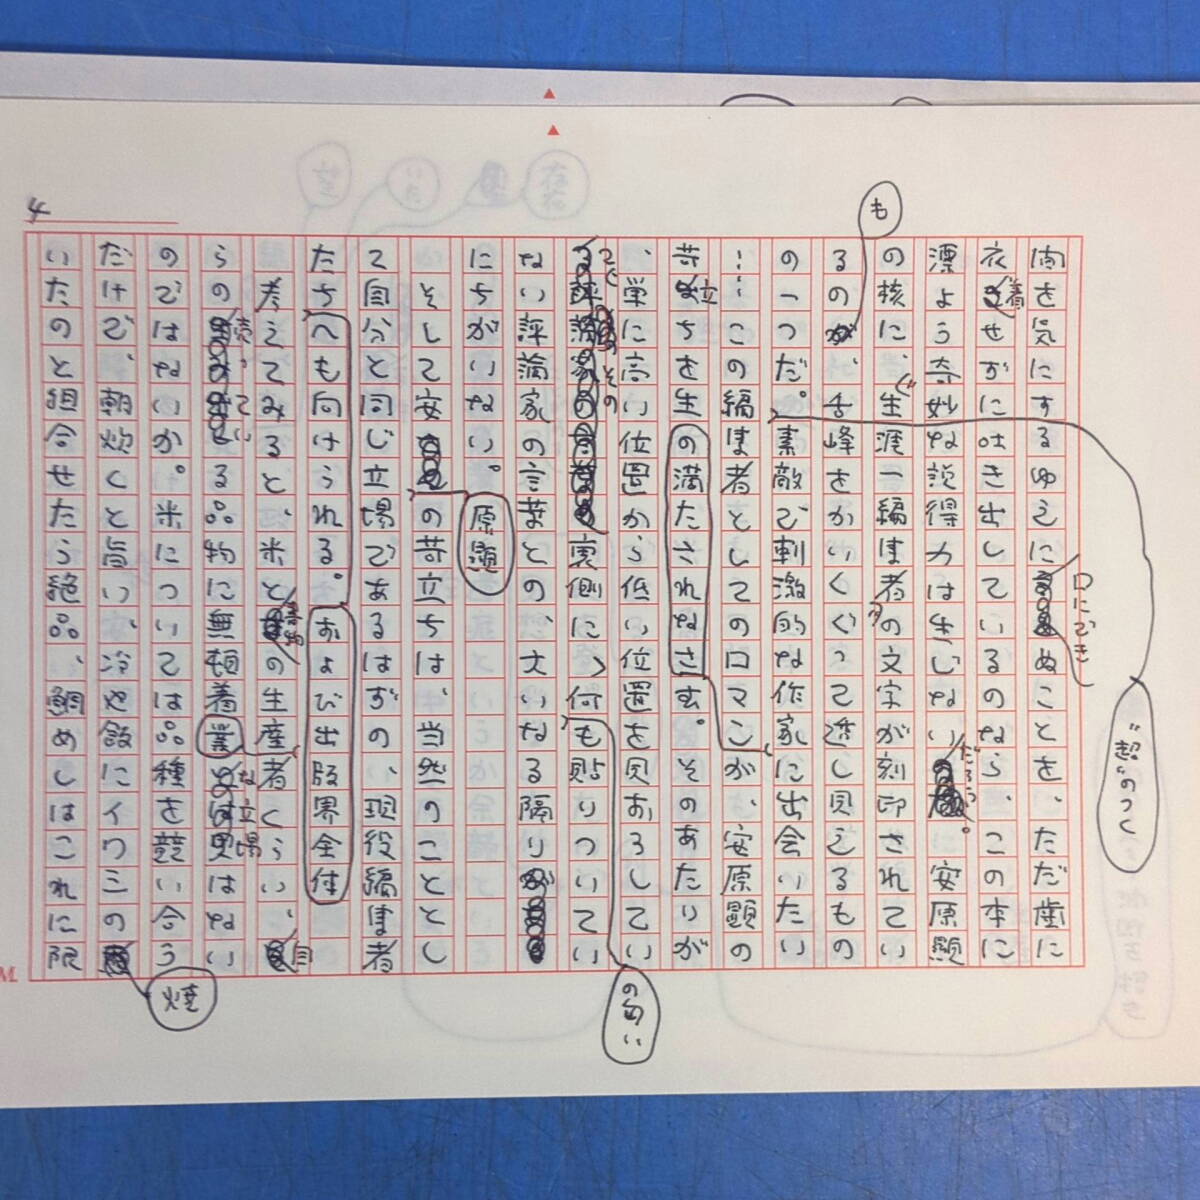 4
向を気にするゆえに口にできぬことを、ただ歯に
衣着せずに吐き出しているのなら、この本に
漂よう奇妙な説得力は生じないだろう。安原顯
の核に、生涯一編集者の文字が刻印されてい
るのも、舌峰をかいくぐって透し見えるもの
の一つだ。"超"のつく素敵で刺激的な作家に出会いたい
……この編集者としてのロマンが、安原顯の
苛立ちを生の満たされなさ玄。そのあたりが
、単に高い位置から低い位置を見おろしてい
て、その裏側に、何の匂いも貼りついてい
ない評論家の言葉との、大いなる隔り
にちがいない。
そして安原顯の苛立ちは、当然のこととし
て自分と同じ立場であるはずの、現役編集者
たちへも向けられる。および出版界全体
考えてみると、米と書物の生産者くらい、自
らの売っている品物に無頓着な立場はない
のではないか。米については品種を競い合う
だけで、朝炊くと旨い、冷や飯にイワシの焼
いたのと組合せたら絶品、鯛めしはこれに限